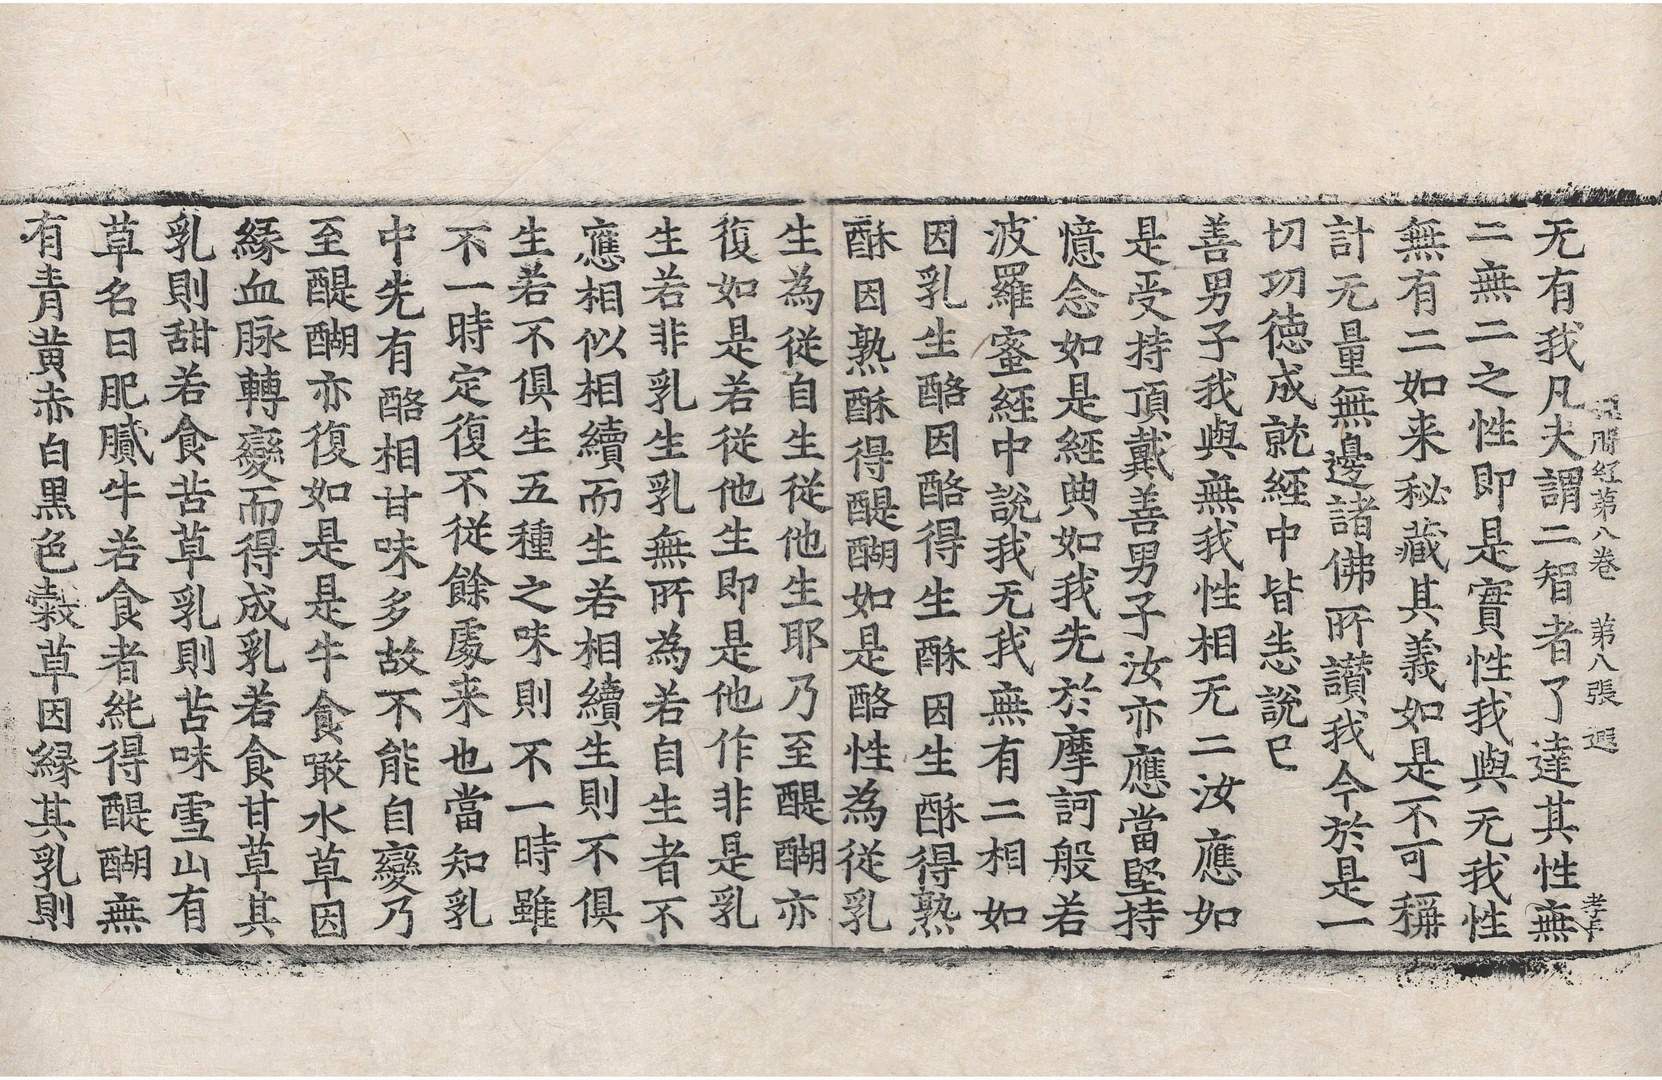 无有我凡夫謂二智者了達其性無
二無二之性即是實性我與无我性
無有二如来秘藏其義如是不可稱
計无量無邊諸佛所讃我今於是一
切功德成就經中皆悉說已
善男子我與無我性相无二汝應如
是受持頂戴善男子汝亦應當堅持
憶念如是經典如我先於摩訶般若
波羅蜜經中說我无我無有二相如
因乳生酪因酪得生酥因生酥得熟
酥因熟酥得醍醐如是酪性為從乳
生為從自生從他生耶乃至醍醐亦
復如是若從他生即是他作非是乳
生若非乳生乳無所為若自生者不
應相似相續而生若相續生則不俱
生若不俱生五種之味則不一時雖
不一時定復不從餘處来也當知乳
中先有酪相甘味多故不能自變乃
至醍醐亦復如是是牛食噉水草因
緣血脉轉變而得成乳若食甘草其
乳則甜若食苦草乳則苦味雪山有
草名曰肥膩牛若食者純得醍醐無
有青黃赤白黑色穀草因緣其乳則
經第八卷 第八張 遐